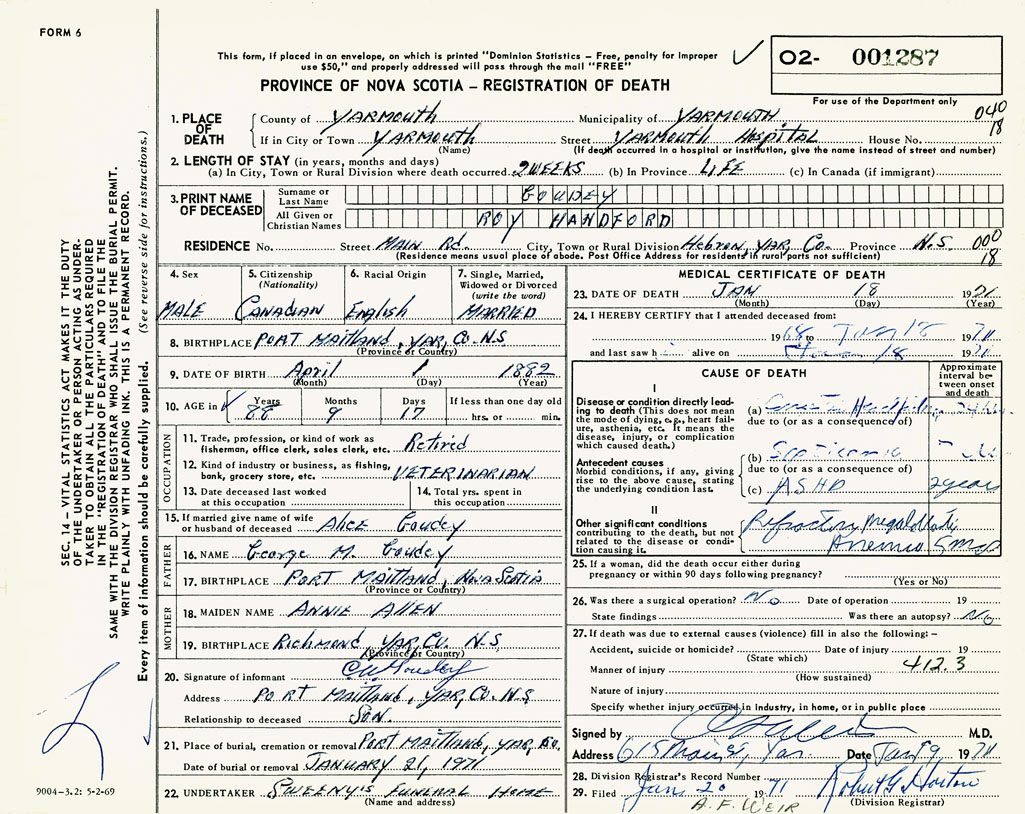 FORM 6
This form, if placed in an envelope, on which is printed "Dominion Statistics - Free, penalty for improper
use $50," and properly addressed will pass through the mail "FREE"
✓ O2- 001287
PROVINCE OF NOVA SCOTIA – REGISTRATION OF DEATH
For use of the Department only
1. PLACE OF DEATH County of YARMOUTH Municipality of YARMOUTH 040
If in City or Town YARMOUTH Street YARMOUTH HOSPITAL House No. 18
(Name) (If death occurred in a hospital or institution, give the name instead of street and number)
2. LENGTH OF STAY (in years, months and days)
(a) In City, Town or Rural Division where death occurred 2 WEEKS (b) In Province LIFE (c) In Canada (if immigrant)
3. PRINT NAME OF DECEASED Surname or Last Name GOUDEY
All Given or Christian Names ROY HANDFORD
RESIDENCE No. Street MAIN Rd. City, Town or Rural Division Hebron, YAR, Co. Province N.S. 000
(Residence means usual place of abode. Post Office Address for residents in rural parts not sufficient) 18
4. Sex MALE
5. Citizenship (Nationality) CANADIAN
6. Racial Origin English
7. Single, Married, Widowed or Divorced (write the word) MARRIED
8. BIRTHPLACE PORT MAITLAND, YAR, CO. N.S
(Province or Country)
9. DATE OF BIRTH April 1 1882
(Month) (Day) (Year)
10. AGE in ✓ Years 88 Months 9 Days 17 If less than one day old hrs. or min.
OCCUPATION
11. Trade, profession, or kind of work as fisherman, office clerk, sales clerk, etc. Retired
12. Kind of industry or business, as fishing, bank, grocery store, etc. VETERINARIAN
13. Date deceased last worked at this occupation
14. Total yrs. spent in this occupation
15. If married give name of wife or husband of deceased Alice Goudey
FATHER
16. NAME George M. Goudey
17. BIRTHPLACE PORT MAITLAND, NOVA SCOTIA
(Province or Country)
MOTHER
18. MAIDEN NAME ANNIE ALLEN
19. BIRTHPLACE RICHMOND, YAR, CO. N.S,
(Province or Country)
20. Signature of informant Goudey
Address PORT MAITLAND, YAR, CO. N.S,
Relationship to deceased SON.
21. Place of burial, cremation or removal PORT MAITLAND, YAR, CO.
Date of burial or removal JANUARY 21, 1971
22. UNDERTAKER SWEENY'S FUNERAL HOME
(Name and address)
MEDICAL CERTIFICATE OF DEATH
23. DATE OF DEATH JAN 18 1971
(Month) (Day) (Year)
24. I HEREBY CERTIFY that I attended deceased from:
1968 to 18 1971
and last saw h alive on 18 1971
CAUSE OF DEATH
Approximate interval between onset and death
I
Disease or condition directly leading to death (This does not mean the mode of dying, e.g., heart failure, asthenia, etc. It means the disease, injury, or complication which caused death.)
(a)
due to (or as a consequence of)
Antecedent causes
Morbid conditions, if any, giving rise to the above cause, stating the underlying condition last.
(b)
due to (or as a consequence of)
(c) ASHD 2 years
II
Other significant conditions contributing to the death, but not related to the disease or condition causing it.
Anemia
25. If a woman, did the death occur either during pregnancy or within 90 days following pregnancy?
(Yes or No)
26. Was there a surgical operation? No Date of operation 19
State findings Was there an autopsy? No
27. If death was due to external causes (violence) fill in also the following:–
Accident, suicide or homicide? Date of injury 19
(State which)
Manner of injury 412.3
(How sustained)
Nature of injury
Specify whether injury occurred in industry, in home, or in public place
Signed by M.D.
Address 615 Main St, Yar. Date Jan 19 1971
28. Division Registrar's Record Number
29. Filed Jan. 20 1971 Robert G. Horton
A. F. WEIR (Division Registrar)
SEC. 14 – VITAL STATISTICS ACT MAKES IT THE DUTY
OF THE UNDERTAKER OR PERSON ACTING AS UNDER-
TAKER TO OBTAIN ALL THE PARTICULARS REQUIRED
IN THE "REGISTRATION OF DEATH" AND TO FILE THE
SAME WITH THE DIVISION REGISTRAR WHO SHALL ISSUE THE BURIAL PERMIT.
WRITE PLAINLY WITH UNFADING INK. THIS IS A PERMANENT RECORD.
Every item of information should be carefully supplied. (See reverse side for instructions.)
9004-3.2: 5-2-69